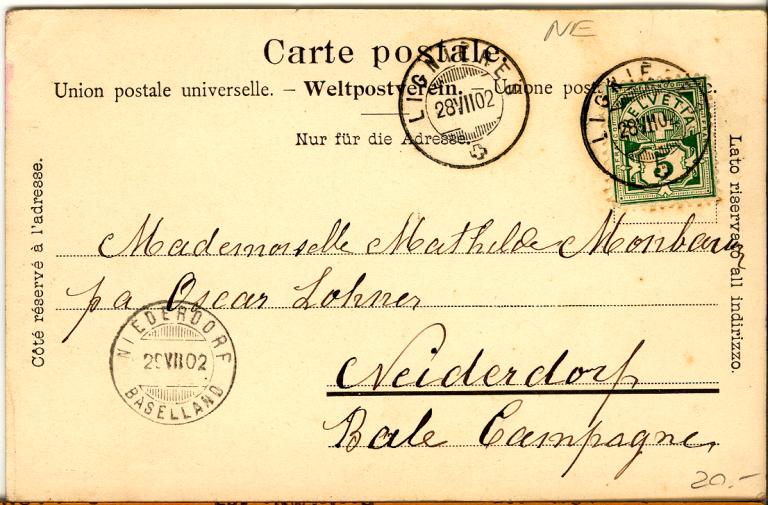 NE
Carte postale.
Union postale universelle. – Weltpostverein. – Unione post e.
Nur für die Adresse.
LIGNIÈRES
28VII02
LIGNIE
28VII02
HELVETIA
5
Côté réservé à l'adresse.
Lato riservato all indirizzo.
Mademoiselle Mathilde
pa Oscar Lohner
Neiderdorf
Bale Campagne,
NIEDERDORF
29VII02
BASELLAND
20.-